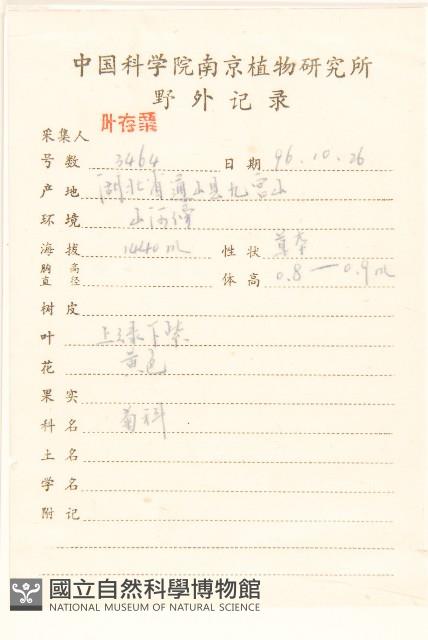 中国科学院南京植物研究所
野外记录
采集人 叶存粟
号数 3464 日期 96.10.26
产地 湖北省通山县九宫山
环境 山沟
海拔 1440 m 性状 草本
胸高直径 体高 0.8—0.9m
树皮
叶 上绿下紫
花 黄色
果实
科名 菊科
土名
学名
附记
國立自然科學博物館
NATIONAL MUSEUM OF NATURAL SCIENCE